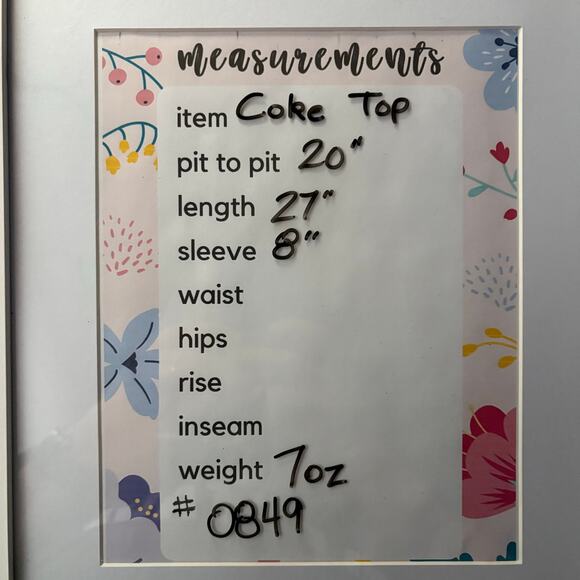 measurements
item Coke Top
pit to pit 20"
length 27"
sleeve 8"
waist
hips
rise
inseam
weight 7oz
# 0849